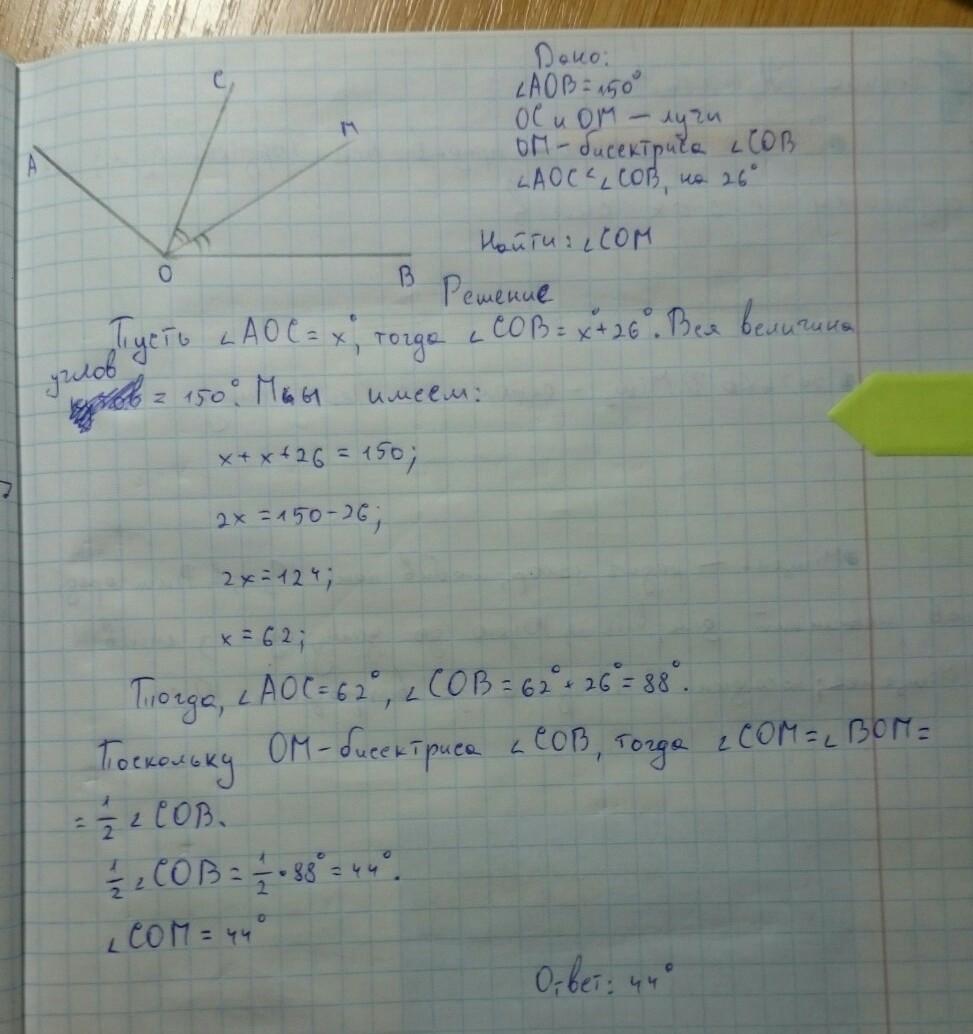 C
M
A
O
B
Дано:
∠AOB=150°
OC и OM – лучи
OM – бисектриса ∠COB
∠AOC<∠COB, на 26°
Найти: ∠COM
Решение
Пусть ∠AOC = x°, тогда ∠COB = x°+26°. Вся величина
углов
= 150°. Мы имеем:
x + x + 26 = 150;
2x = 150 - 26;
2x = 124;
x = 62;
Тогда, ∠AOC = 62°, ∠COB = 62° + 26° = 88°.
Поскольку OM – бисектриса ∠COB, тогда ∠COM = ∠BOM =
= 1/2 ∠COB.
1/2 ∠COB = 1/2 • 88° = 44°.
∠COM = 44°
Ответ: 44°